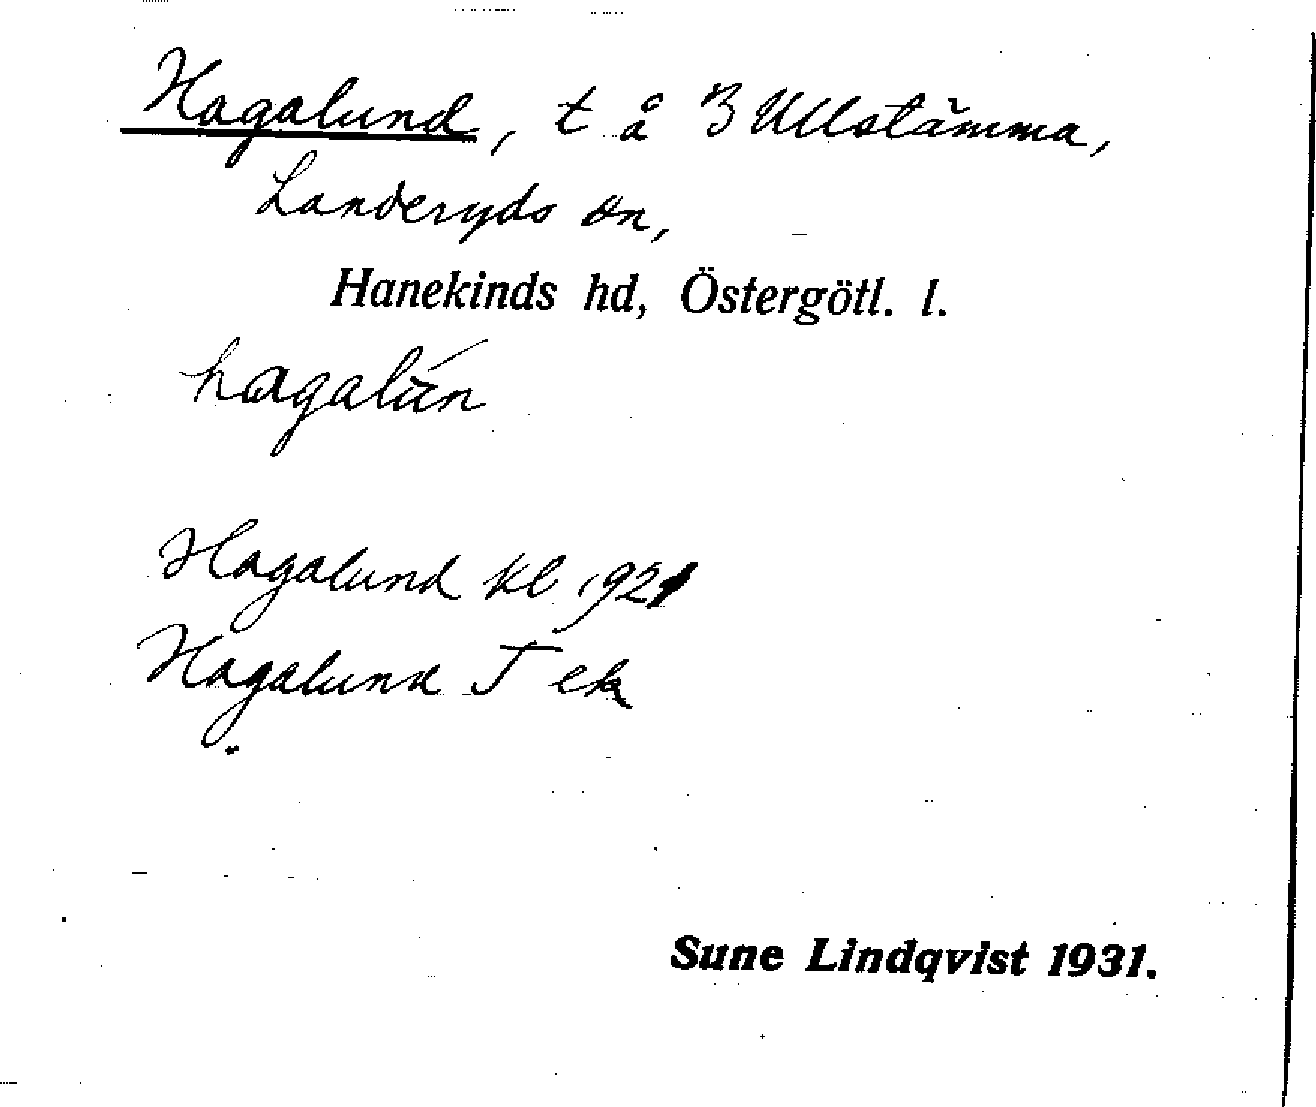 Hagalund, t å 3 Ullstämma,
Landeryds sn,
Hanekinds hd, Östergötl. l.
hagalún
Hagalund kl 1921
Hagalund T ek
Sune Lindqvist 1931.